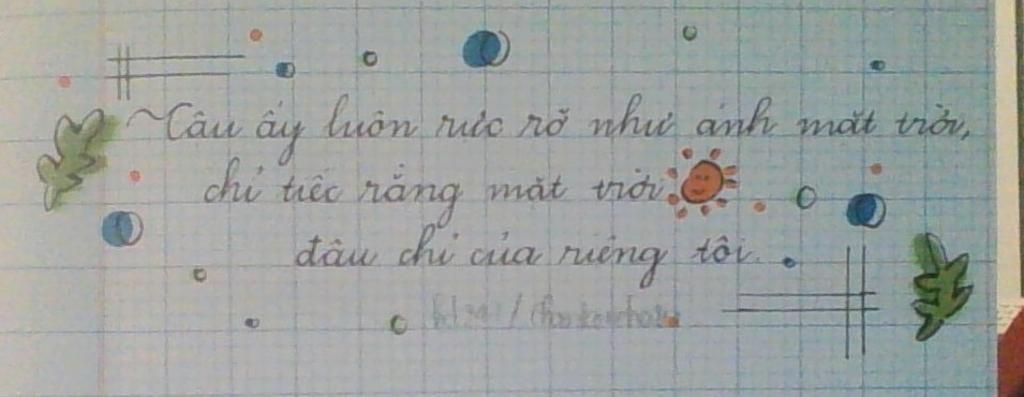 ~Cậu ấy luôn rực rỡ như ánh mặt trời,
chỉ tiếc rằng mặt trời
đâu chỉ của riêng tôi.